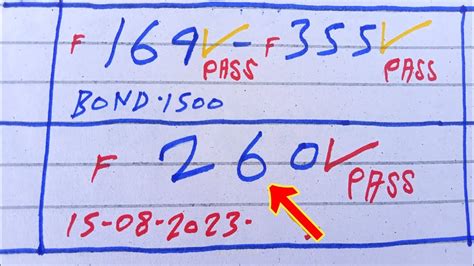 F 169✓-F 355✓
PASS PASS
BOND.1500
F 260✓
PASS
15-08-2023.